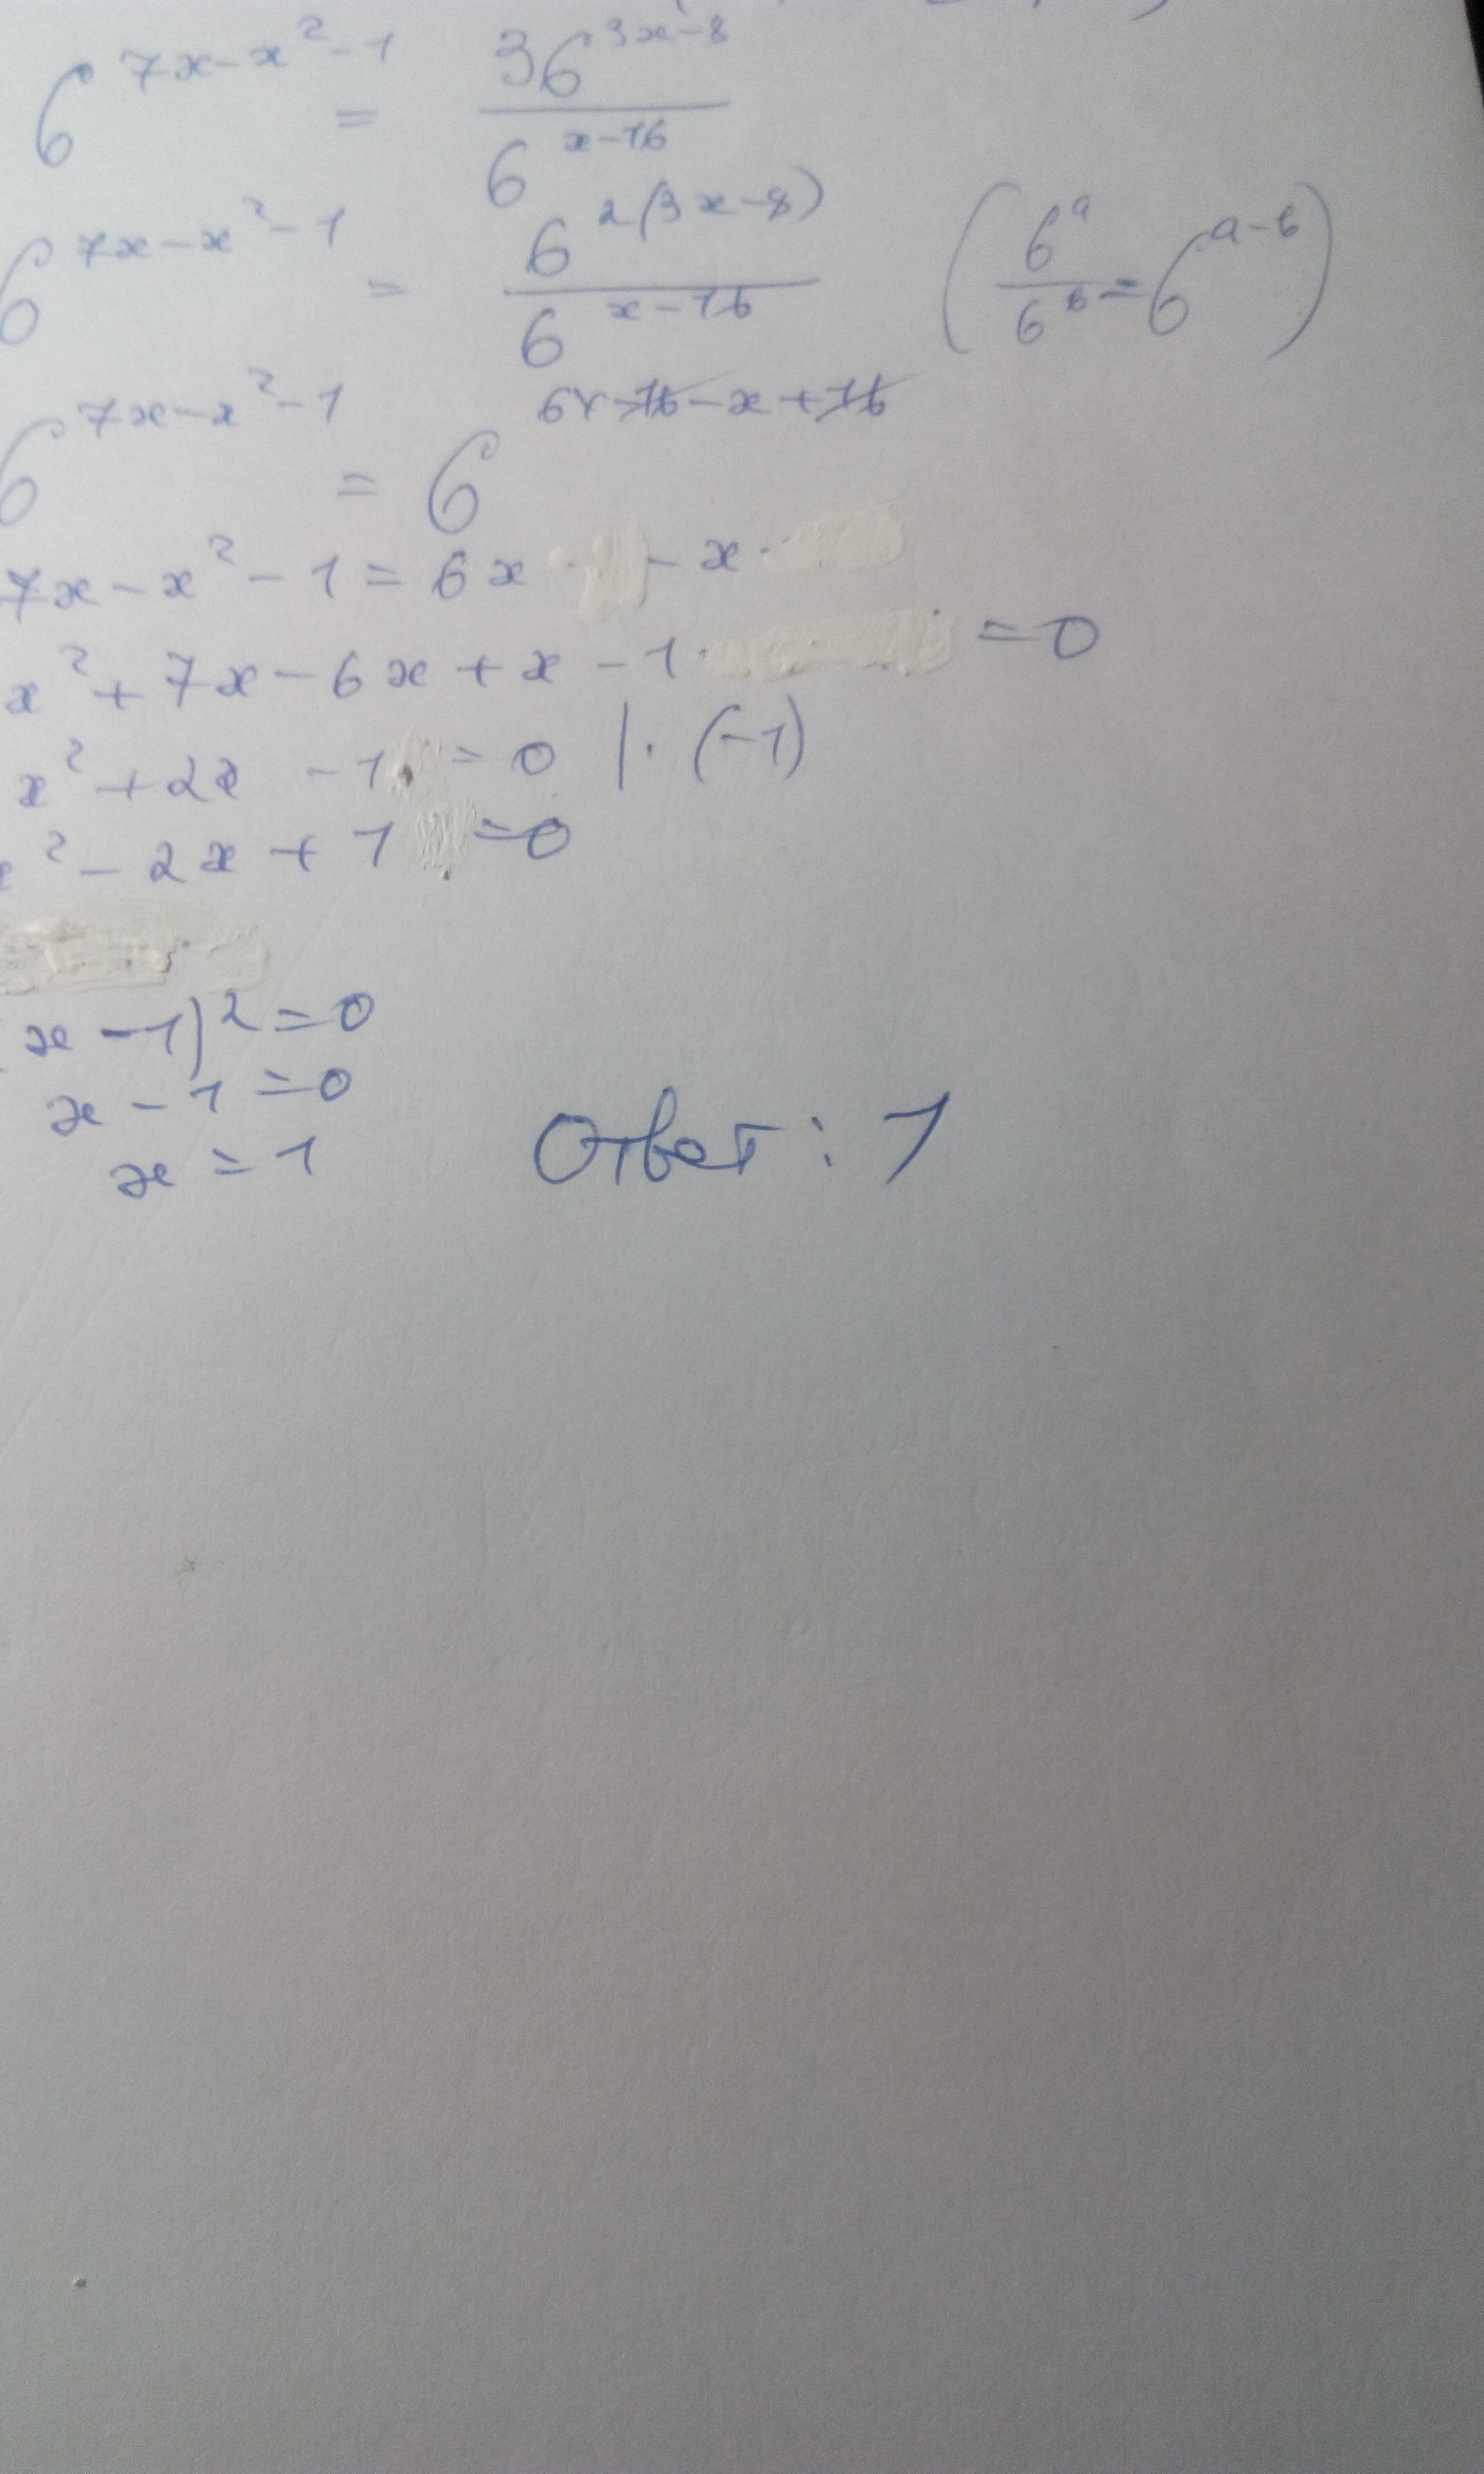 6^(7x-x²-1) = 36^(3x-8) / 6^(x-16)
6^(7x-x²-1) = 6^(2(3x-8)) / 6^(x-16) (6^a / 6^b = 6^(a-b))
6^(7x-x²-1) = 6^(6x-16-x+16)
7x-x²-1=6x -x
x²+7x-6x+x-1 =0
x²+2x -1 =0 |·(-1)
x²-2x+1 =0
(x-1)²=0
x-1=0
x=1 Ответ: 1